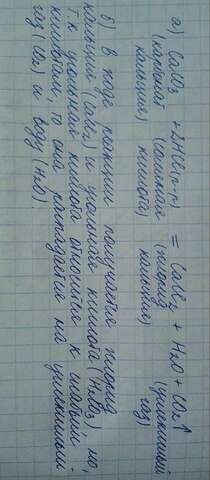 а) CaCO₃ + 2HCl(р-р) = CaCl₂ + H₂O + CO₂↑
(карбонат (соляная (хлорид (углекислый
кальция) кислота) кальция) газ)
б) В ходе реакции получается хлорид
кальция (CaCl₂) и угольная кислота (H₂CO₃), но,
т.к угольная кислота относится к слабым
кислотам, то она распадается на углекислый
газ (CO₂) и воду (H₂O).